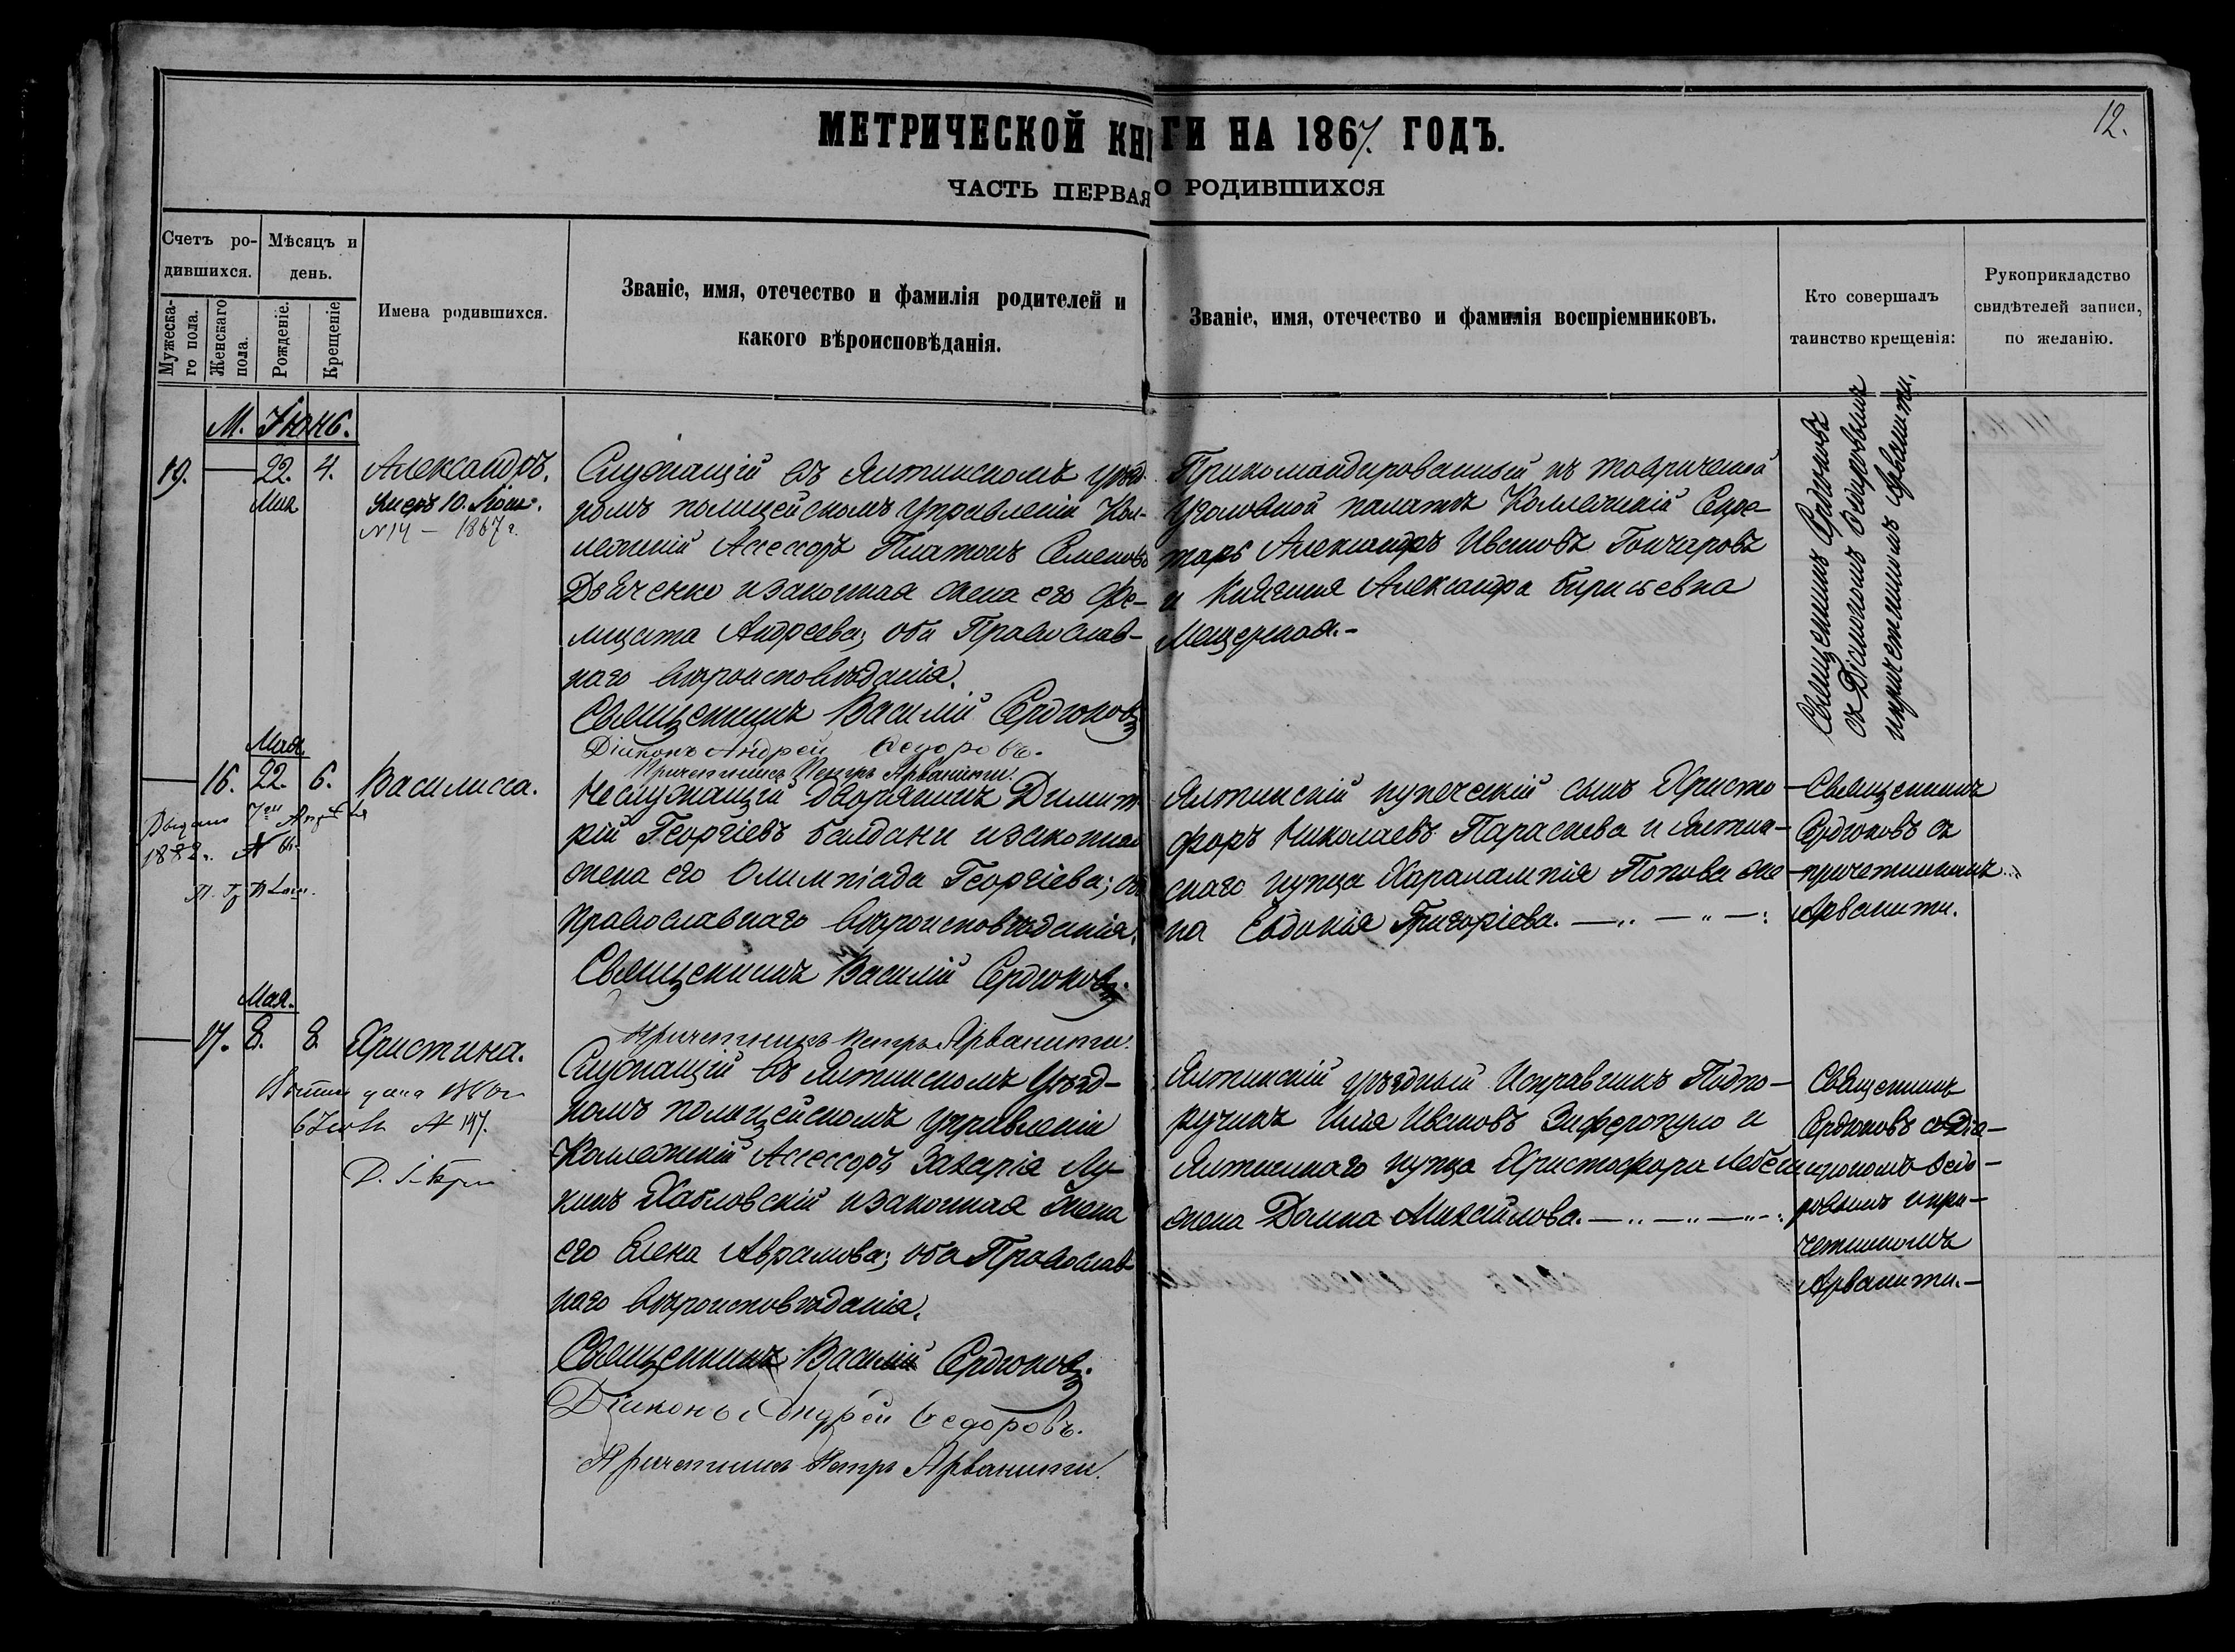 12.
МЕТРИЧЕСКОЙ КНИГИ НА 1867. ГОДЪ.
ЧАСТЬ ПЕРВАЯ О РОДИВШИХСЯ
Счетъ ро-
дившихся.
Мужеска-
го пола.
Женскаго
пола.
Мѣсяцъ и
день.
Рожденіе.
Крещеніе
Имена родившихся.
Званіе, имя, отечество и фамилія родителей и
какого вѣроисповѣданія.
Званіе, имя, отечество и фамилія воспріемниковъ.
Кто совершалъ
таинство крещенія:
Рукоприкладство
свидѣтелей записи,
по желанію.
М. Іюнь.
19. 22. 4.
Мая
Александръ.
Умеръ 10.
№ 14 – 1867 г.
Служащій въ Ялтинскомъ уѣзд-
номъ полицейскомъ Управленіи Кол-
лежскій Ассессоръ Платонъ Семеновъ
Дьяченко и законная жена его Фе-
лицата Андреева; оба Православ-
наго вѣроисповѣданія.
Священникъ Василій Сердюковъ
Діаконъ Андрей Ѳедоровъ.
Причетникъ Петръ Арванити.
Прикомандированный къ таврической
Уголовной палатѣ Коллежскій Секре-
тарь Александръ Ивановъ Гончаровъ
и Княгиня Александра Борисовна
Мещерская.-
Священникъ Сердюковъ
съ Діакономъ Ѳедоровымъ
и причетникомъ Арванити.
Мая
16. 22. 6.
Василисса.
1882 г.
Неслужащій дворянинъ Димит-
рій Георгіевъ Балдани и законная
жена его Олимпіада Георгіева; оба
православнаго вѣроисповѣданія.
Священникъ Василій Сердюковъ.
Причетникъ Петръ Арванити.
Ялтинскій купеческій сынъ Христо-
форъ Николаевъ Параскева и Ялтин-
скаго купца Харалампія Попова же-
на Евдокія Григоріева.
Священникъ
Сердюковъ съ
причетникомъ
Арванити.
Мая.
17. 8. 8.
Христина.
№ 197.
Служащій въ Ялтинскомъ Уѣзд-
номъ полицейскомъ управленіи
Коллежскій Ассессоръ Захарія Лу-
кинъ Хабловскій и законная жена
его Елена Аврамова; оба Православ-
наго вѣроисповѣданія.
Священникъ Василій Сердюковъ.
Діаконъ Андрей Ѳедоровъ.
Причетникъ Петръ Арванити.
Ялтинскій уѣздный Исправникъ Подпо-
ручикъ Илья Ивановъ Зиферопуло и
Ялтинскаго купца Христофора
жена Домна Михайлова.
Священникъ
Сердюковъ съ Діа-
кономъ Ѳедо-
ровымъ и при-
четникомъ
Арванити.-